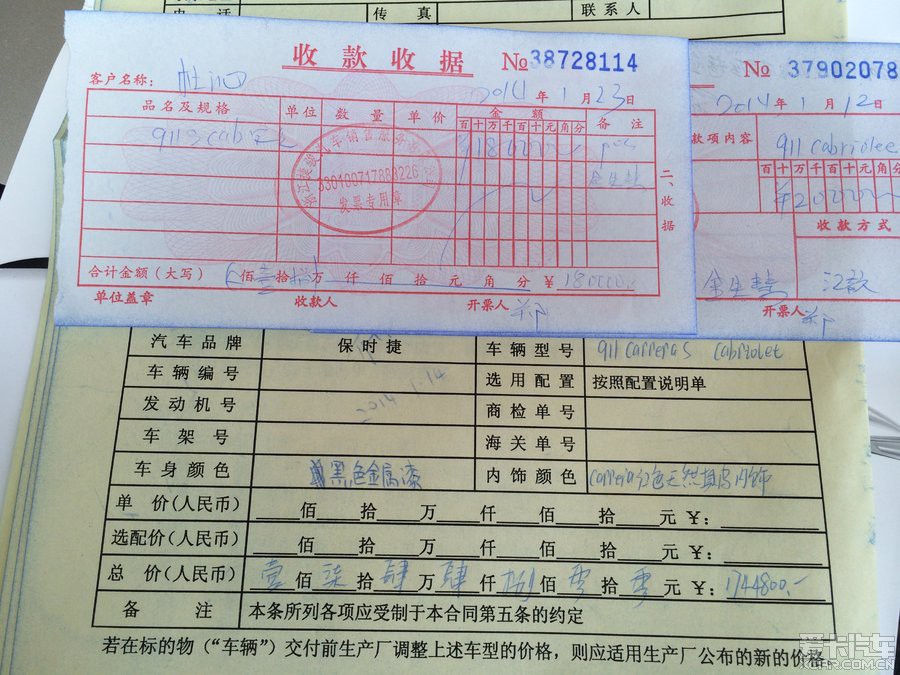 电 话 传 真 联 系 人
收款收据 №38728114
客户名称：
2014年1月23日
品名及规格 单位 数量 单价 金额 备注
百十万千百十元角分
911 S cab
330100717888226
发票专用章
二、收据
合计金额（大写） 佰壹拾捌万仟佰拾元角分 ￥180000
单位盖章 收款人 开票人
№ 37902078
2014年1月12日
款项内容 911 cabriolet
百十万千百十元角分
收款方式
金生慧 汇款
开票人
汽车品牌 保时捷 车辆型号 911 Carrera S Cabriolet
车辆编号 选用配置 按照配置说明单
发动机号 2014 1.14 商检单号
车架号 海关单号
车身颜色 黑色金属漆 内饰颜色 Carrera红色天然真皮内饰
单 价（人民币） 佰 拾 万 仟 佰 拾 元 ￥：
选配价（人民币） 佰 拾 万 仟 佰 拾 元 ￥：
总 价（人民币） 壹佰柒拾肆万肆仟捌佰零拾零元 ￥：1744800.-
备 注 本条所列各项应受制于本合同第五条的约定
若在标的物（“车辆”）交付前生产厂调整上述车型的价格，则应适用生产厂公布的新的价格。
爱卡汽车
XCAR.COM.CN